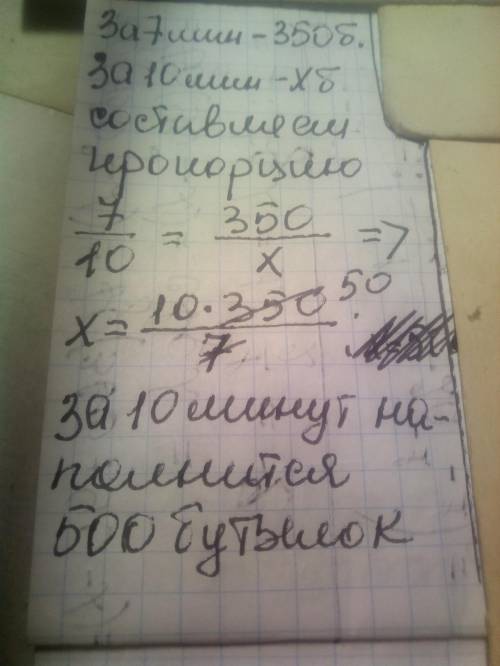 За 7 мин - 350 б.
За 10 мин - х б
составляем
пропорцию
7/10 = 350/х =>
х = 10 · 350 / 7 50
За 10 минут на-
полнится
500 бутылок